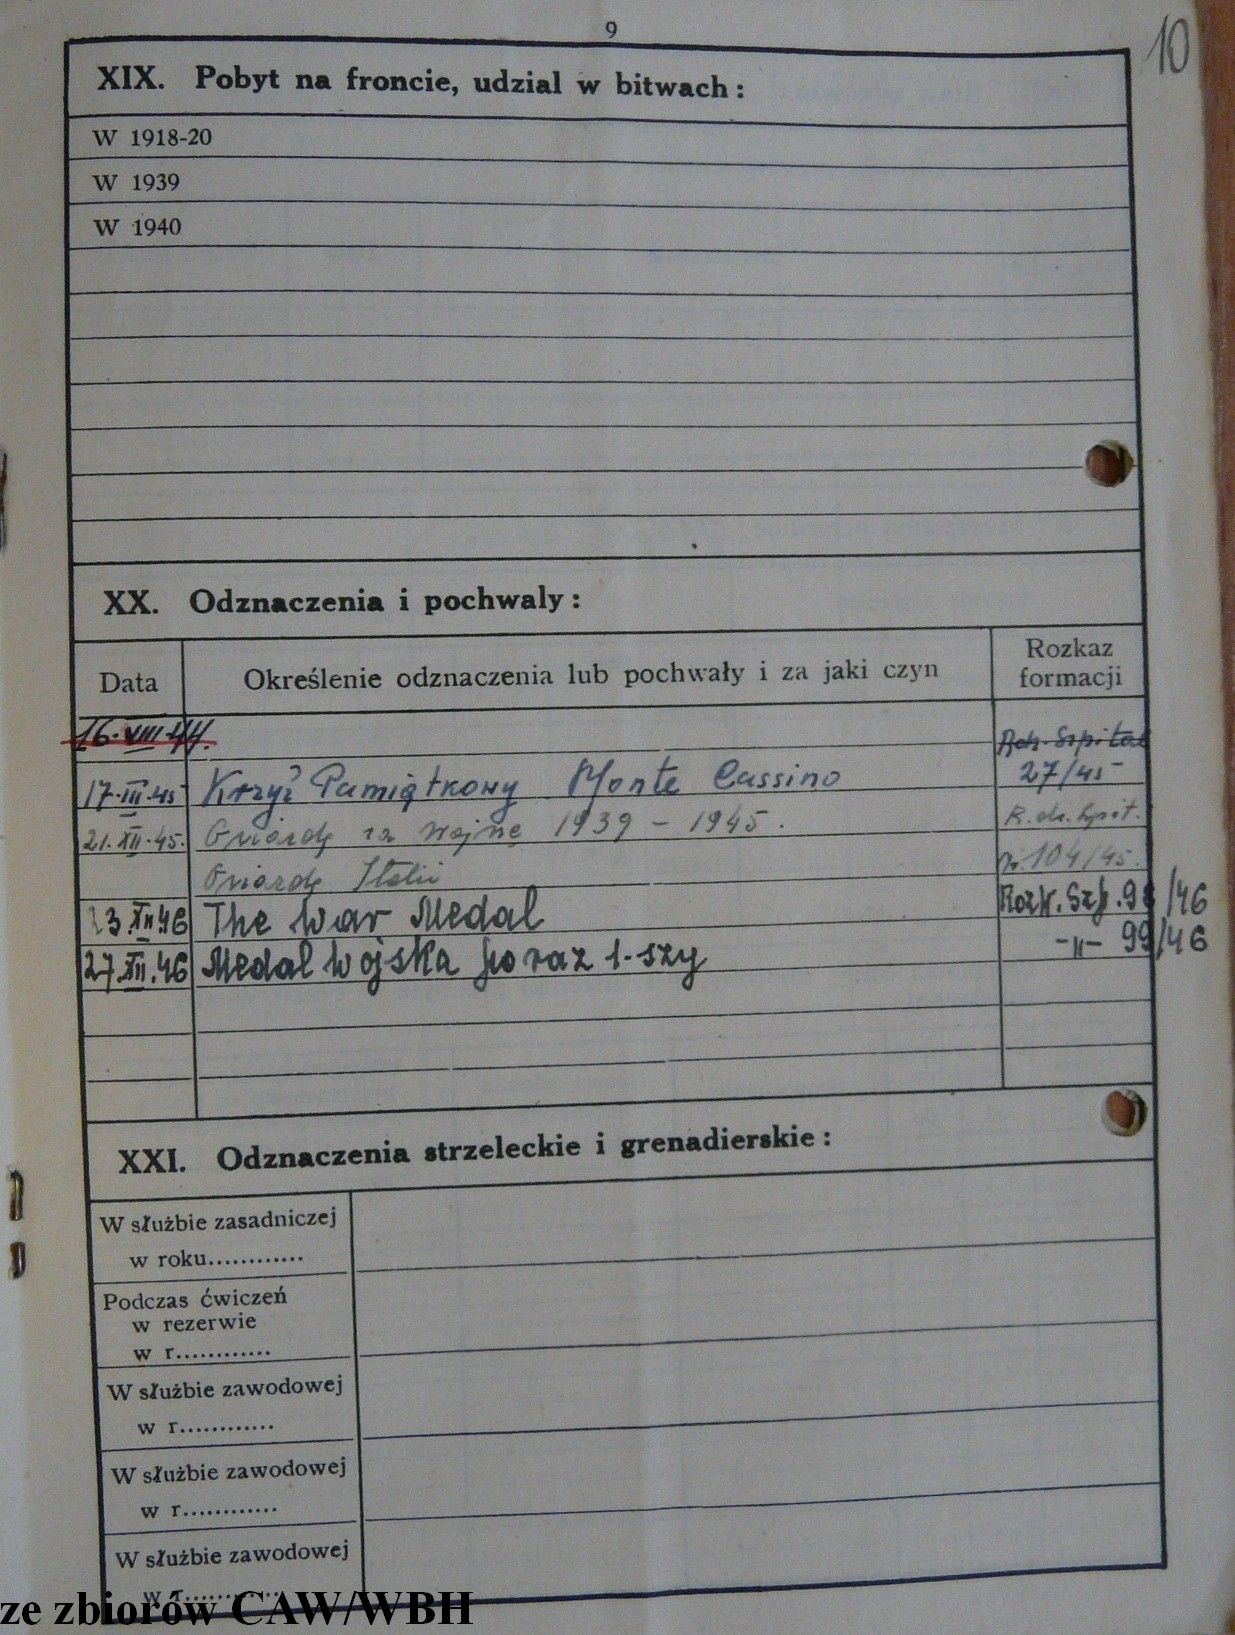 9
10
XIX. Pobyt na froncie, udzial w bitwach :
W 1918-20
W 1939
W 1940
XX. Odznaczenia i pochwaly :
Data
Określenie odznaczenia lub pochwały i za jaki czyn
Rozkaz
formacji
16.VIII.44.
Szpital
17.III.45 Krzyż Pamiątkowy Monte Cassino 27/45
21.XII.45. Gwiazdę za Wojnę 1939 – 1945.
Gwiazdę Italii Nr. 104/45.
23.XII.46 The War Medal Rozk. Szp. 98/46
27.XII.46 Medal Wojska po raz 1-szy -"- 99/46
XXI. Odznaczenia strzeleckie i grenadierskie :
W służbie zasadniczej
w roku............
Podczas ćwiczeń
w rezerwie
w r............
W służbie zawodowej
w r............
W służbie zawodowej
w r............
W służbie zawodowej
w r............
ze zbiorów CAW/WBH